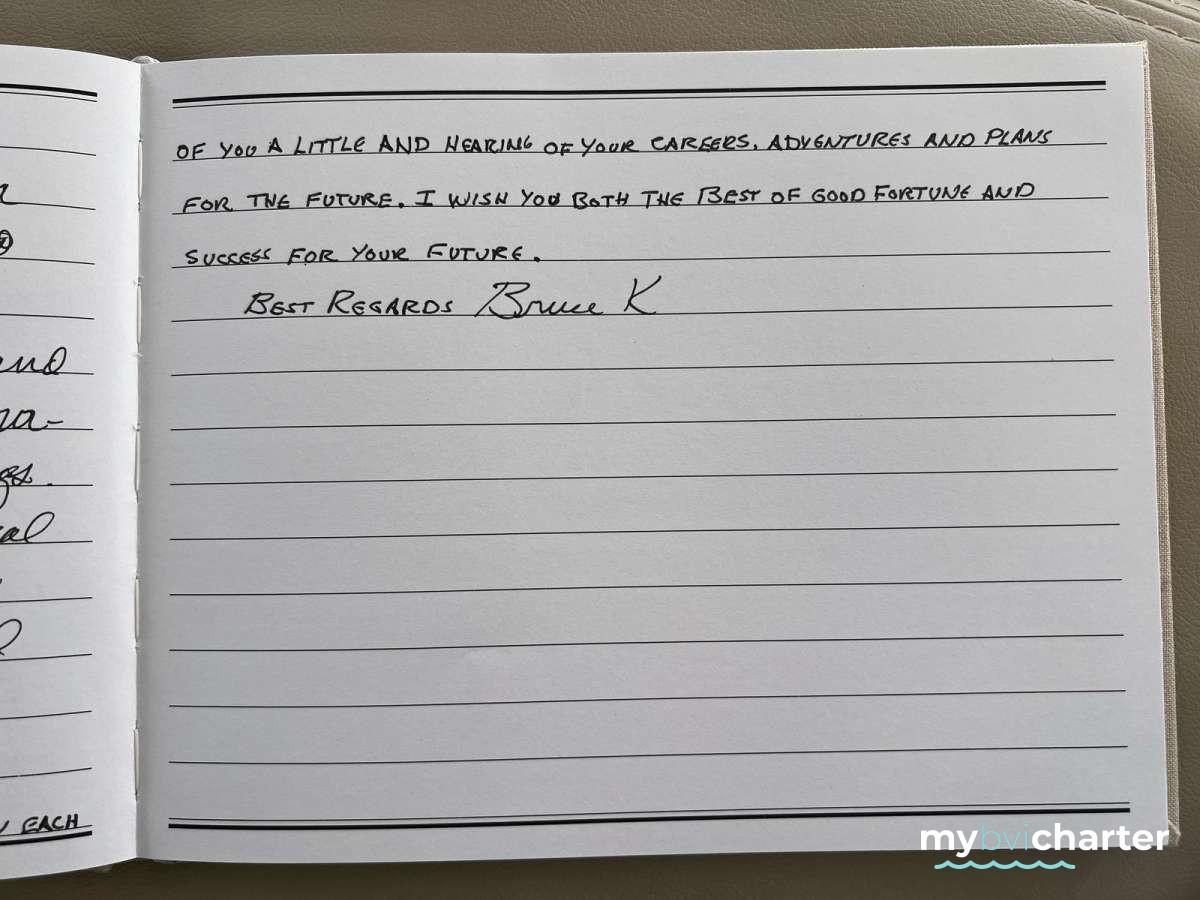 and
EACH
OF YOU A LITTLE AND HEARING OF YOUR CAREERS, ADVENTURES AND PLANS
FOR THE FUTURE. I WISH YOU BOTH THE BEST OF GOOD FORTUNE AND
SUCCESS FOR YOUR FUTURE.
BEST REGARDS Bruce K
mybvicharter